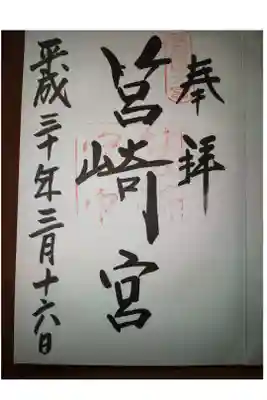 奉拝
筥崎宮
平成三十年三月十六日